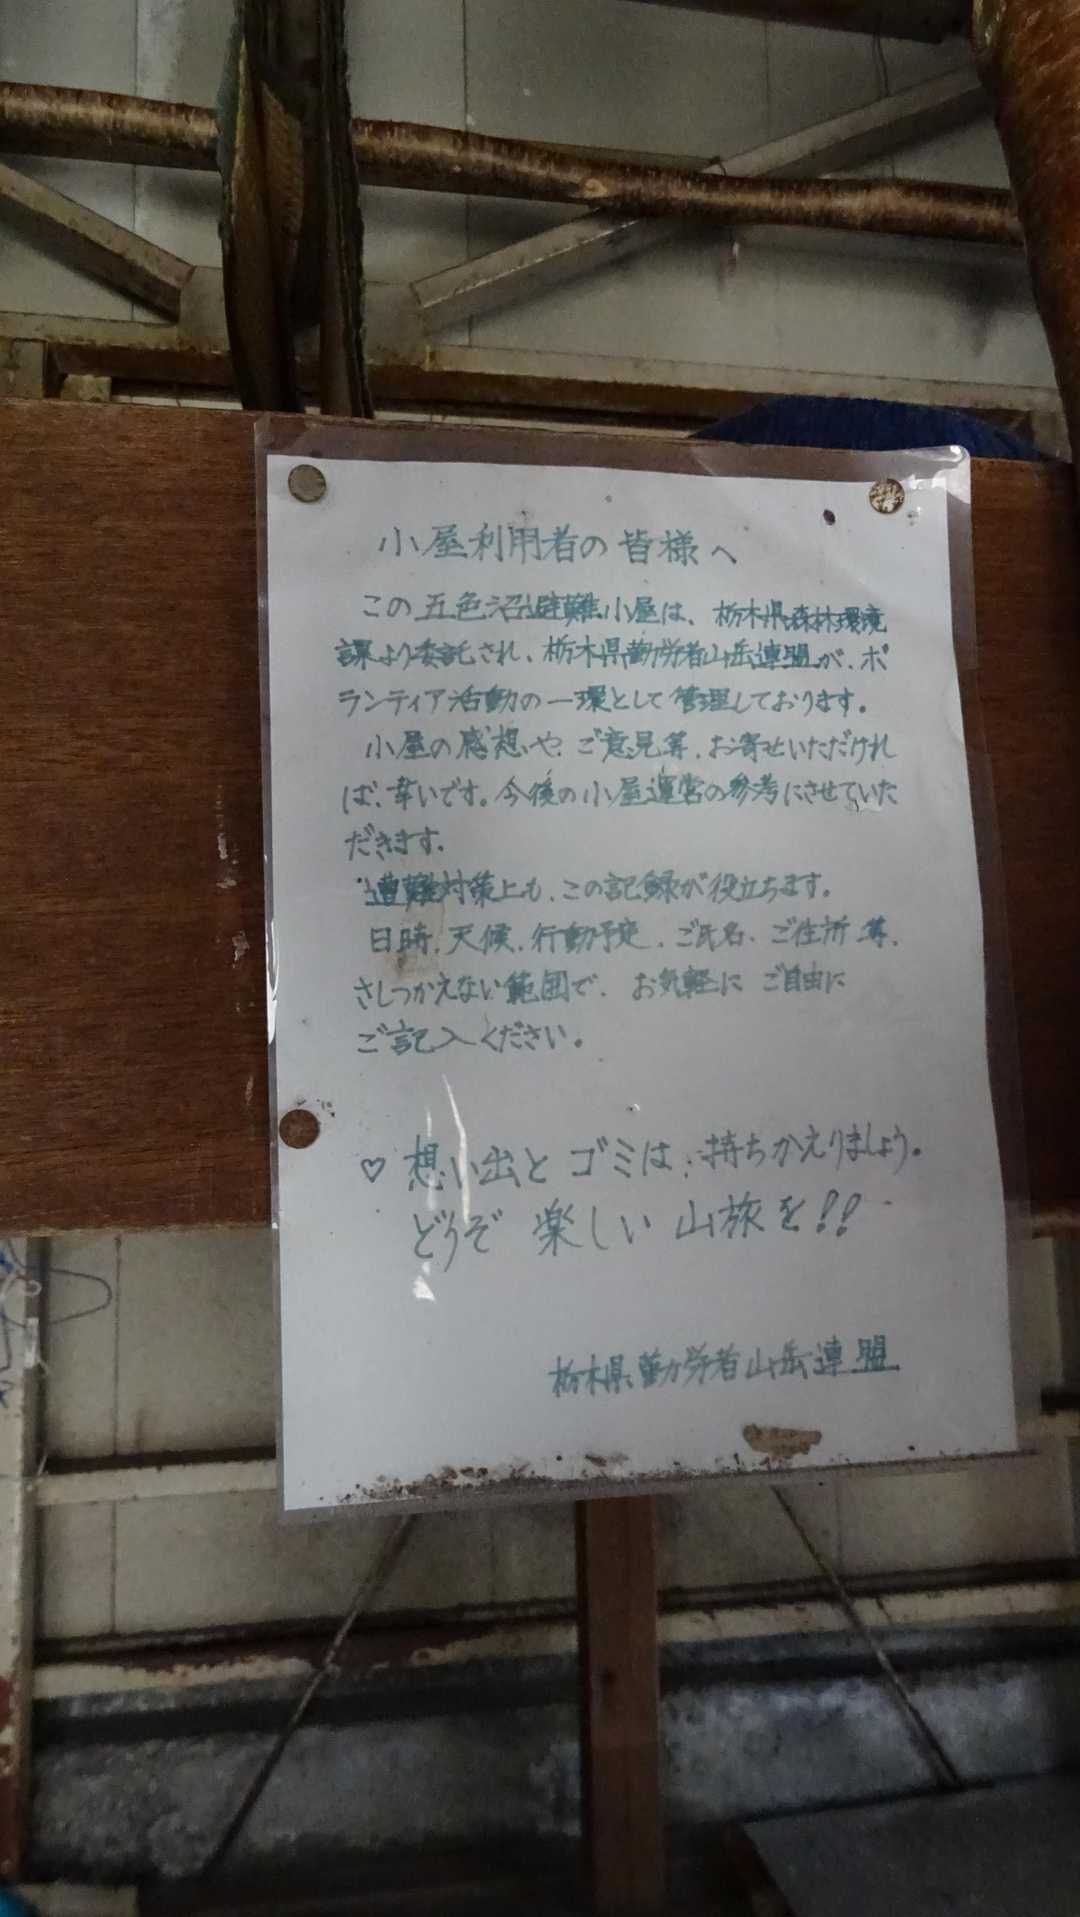 小屋利用者の皆様へ
この五色沼避難小屋は、栃木県森林環境
課より委託され、栃木県勤労者山岳連盟が、ボ
ランティア活動の一環として管理しております。
小屋の感想や、ご意見等、お寄せいただけれ
ば、幸いです。今後の小屋運営の参考にさせていた
だきます。
遭難対策上も、この記録が役立ちます。
日時、天候、行動予定、ご氏名、ご住所等、
さしつかえない範囲で、お気軽に ご自由に
ご記入ください。
♡ 想い出と ゴミは、持ちかえりましょう。
どうぞ 楽しい 山旅を!!
栃木県勤労者山岳連盟